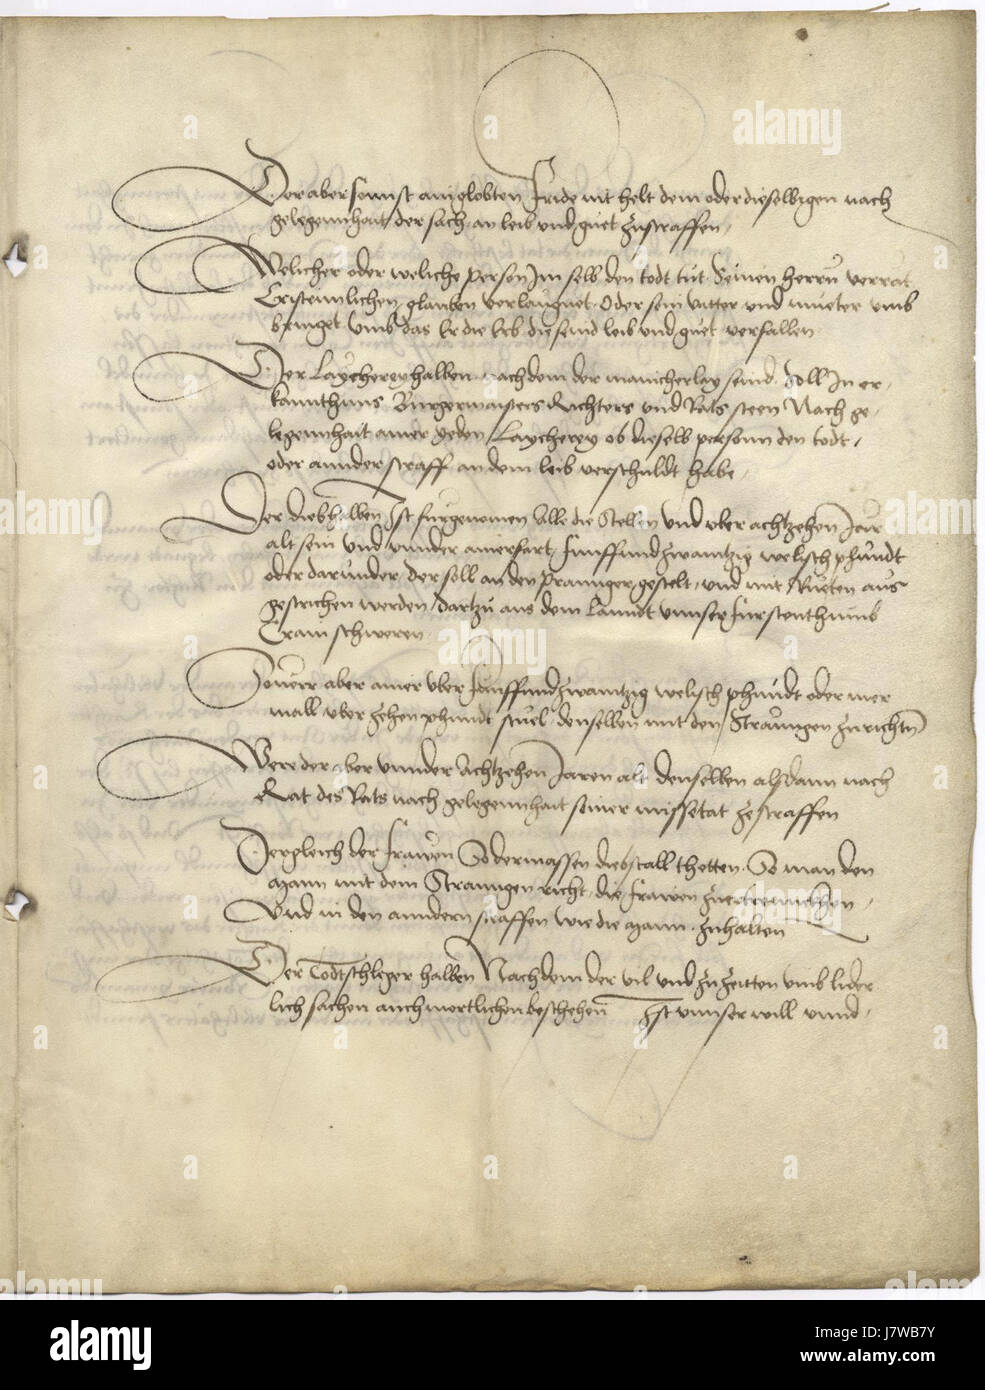 Wer aber sunst ain globten Fride nit helt dem oder dieselbigen nach
gelegennhait der sach an leib und guet zustraffen
Welicher oder weliche person Im selb den todt tut Seinen herrn verrat
Cristennlichen glauben verlaugnet Oder sein vatter und mueter umb
bringet umb das Er die Erb die seind leib und guet verfallen
Der Laychereyhalben nachdem der manicherlay seind Soll In er
kanntnus Burgermaisters Richters und Rats steen Nach ge
legennhait ainer yeden Laycherey ob dieselb personn den todt
oder annder straff an dem leib verschuldt habe
Der diebhalben Ist furgenomen Alle die Stellen und uber achtzehen Jar
alt sein und unnder ainer fart funffundzwaintzig welisch phundt
oder darunder der soll an den pranger gestelt und mit Rueten aus
gestrichen werden dartzu aus dem Lanndt unnser furstenthumb
Crain schweren
Souerr aber ainer uber funffundzwaintzig welisch phundt oder mer
mall uber zehen phundt stiel denselben mit den Stranngen zurichtn
Were der aber unnder Achtzehen Jaren alt denselben alsdann nach
Rat des Rats nach gelegennhait seiner missetat ze straffen
Dergleich der frawen So dermassen diebstall thetten So man den
mann mit dem Stranngen richt die frawen zuertrennckhen
Und in den anndern straffen wie die mann zuhalten
Der Todtschleger halben Nachdem der vil und zu zeitten umb lider
lich sachen auch mortlichen beschehen Ist unnser will unnd
alamy
J7WB7Y
www.alamy.com